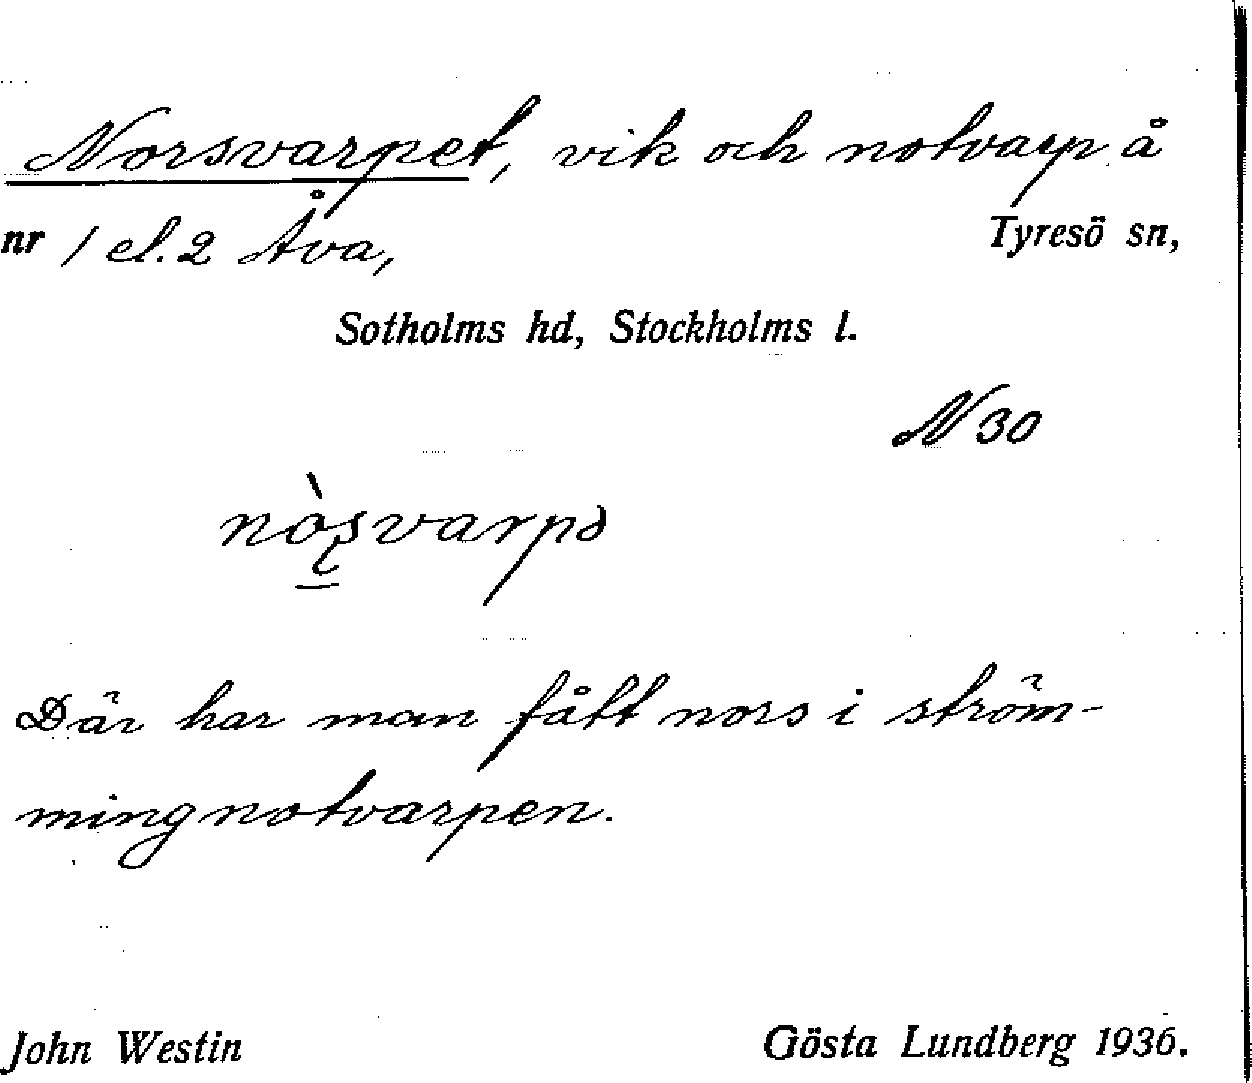 Norsvarpet, vik och notvarp å
nr 1 el. 2 Åva, Tyresö sn,
Sotholms hd, Stockholms l.
N 30
nò̱ʂvarpə
Där har man fått nors i ström-
mingnotvarpen.
John Westin Gösta Lundberg 1936.